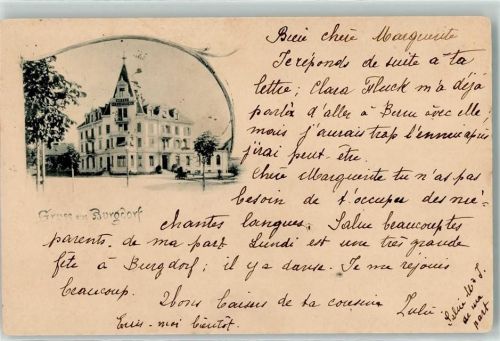 Bien chère Marguerite
Je réponds de suite à ta
lettre; Clara Fluck m'a déjà
parlée d'aller à Berne avec elle;
mais j'aurais trop l'ennui après
j'irai peut-être.
Chère Marguerite tu n'as pas
besoin de t'occuper des mé-
chantes langues. Salue beaucoup tes
parents de ma part. Lundi est une très grande
fête à Burgdorf; il y a danse. Je me réjouis
beaucoup.
Bons baisers de ta cousine
Ecris-moi bientôt.
Gruss en Burgdorf
Salue
de ma
part